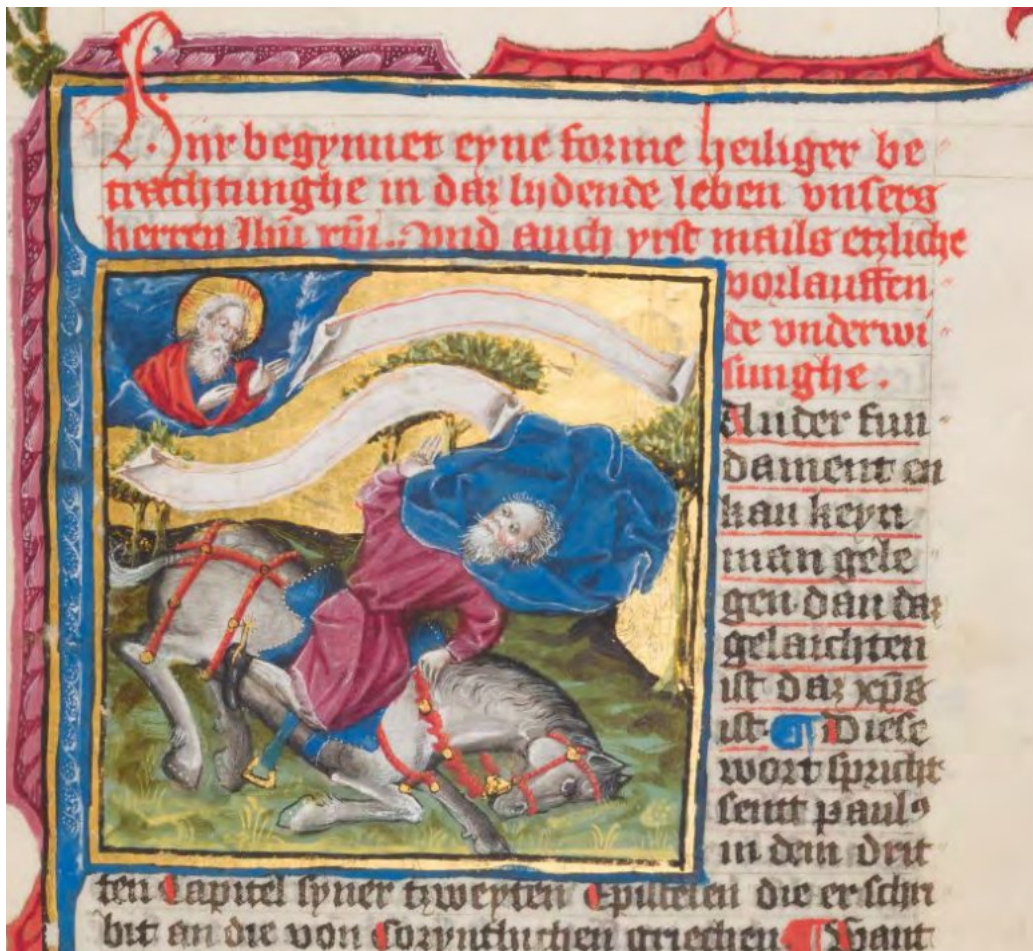 Hijr begynnet eyne forme heiliger be
trachtunghe in daz lydende leben vnsers
herren Ihū xp̄i. Vnd auch yrst mails etzliche
vorlauffen
de vnderwi
sunghe.
Ander fun
dament en
kan keyn
man gele
gen dan daz
gelaichten
ist daz xp̄s
ist. Diese
wort spricht
sent paulꝰ
in dem drit
ten Capitel syner tzweyten Epistelen die er schri
bit an die von Corynthichen griechen Want